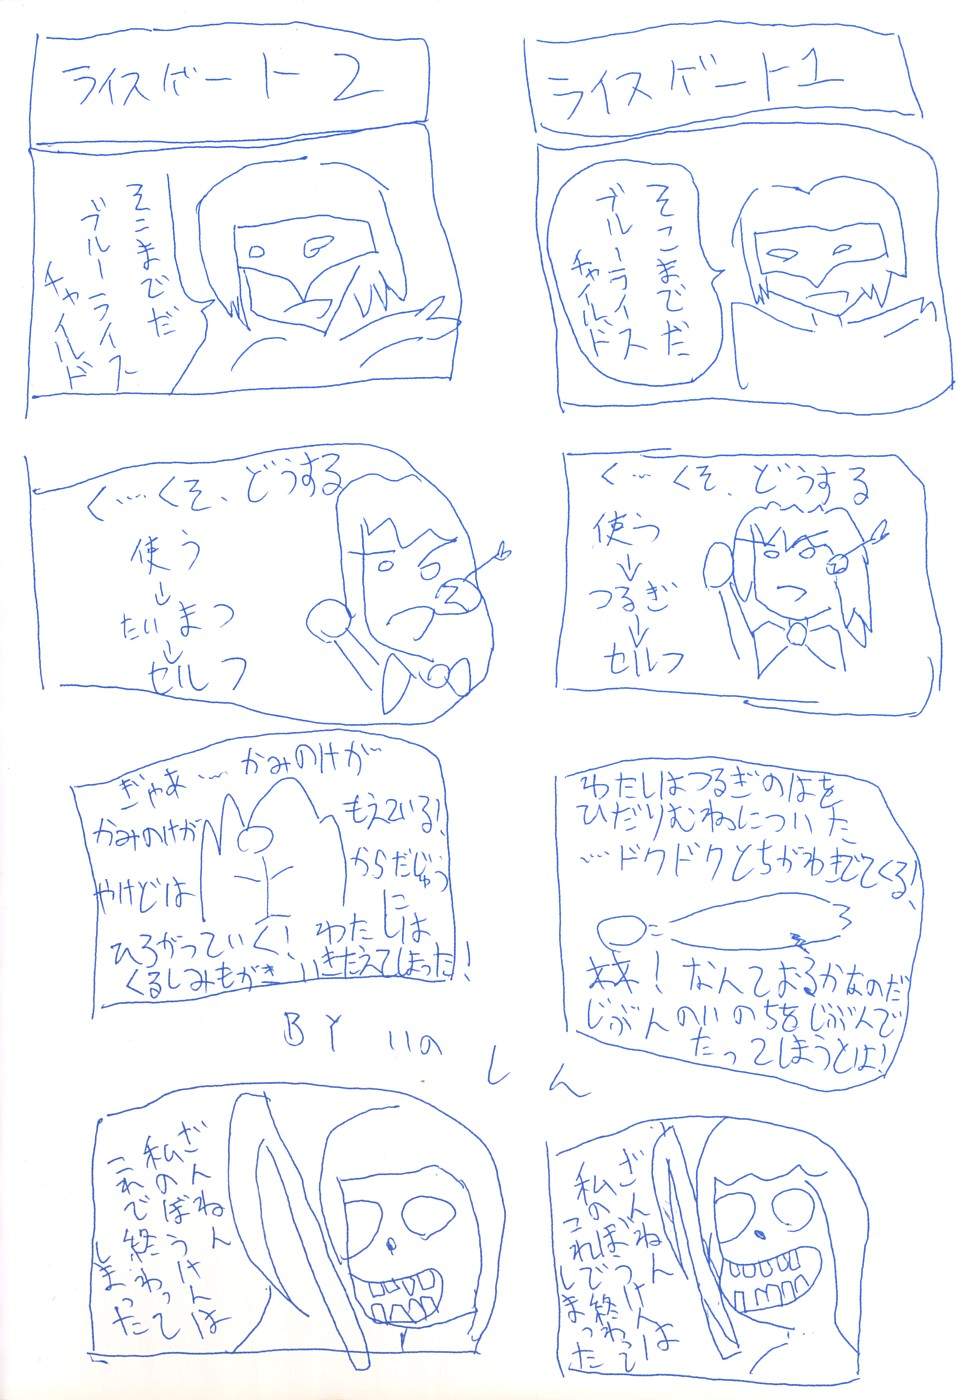 ライスゲート1
そこまでだ
ブルーライス
チャイルド
く…くそ、どうする
使う
↓
つるぎ
↓
セルフ
わたしはつるぎのはを
ひだりむねについた
…ドクドクとちがわきでてくる!
なんておろかなのだ
じぶんのいのちをじぶんで
たってしまうとは!
ざんねん
私のぼうけんは
これで終わって
しまった
ライスゲート2
そこまでだ
ブルーライス
チャイルド
く…くそ、どうする
使う
↓
たいまつ
↓
セルフ
ぎゃあ…かみのけが
かみのけが もえている!
やけどは からだじゅう
に
ひろがっていく! わたしは
くるしみもがき いきたえてしまった!
BY いの
しん
ざんねん
私のぼうけんは
これで終わって
しまった